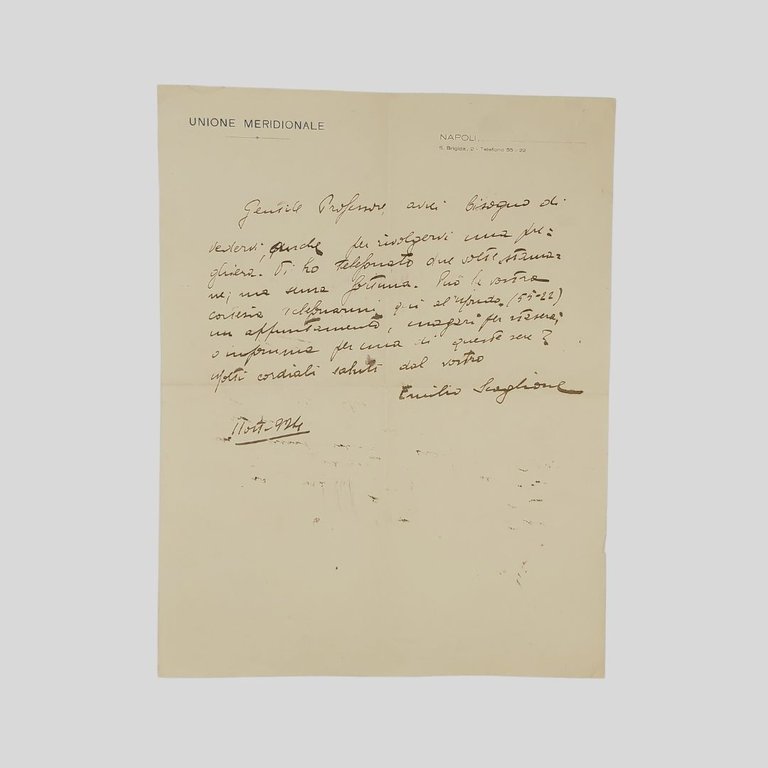 UNIONE MERIDIONALE
NAPOLI
S. Brigida, 2 - Telefono 55-22
Gentile Professore, avrei bisogno di
vedervi, anche per rivolgervi una pre=
ghiera. Vi ho telefonato due volte, stama=
ne, ma senza fortuna. Può la vostra
cortesia telefonarmi, qui all'ufficio, (55-22)
un appuntamento, magari per stasera,
o insomma per una di queste sere?
Molti cordiali saluti dal vostro
Emilio Scaglione
11 ott. 924